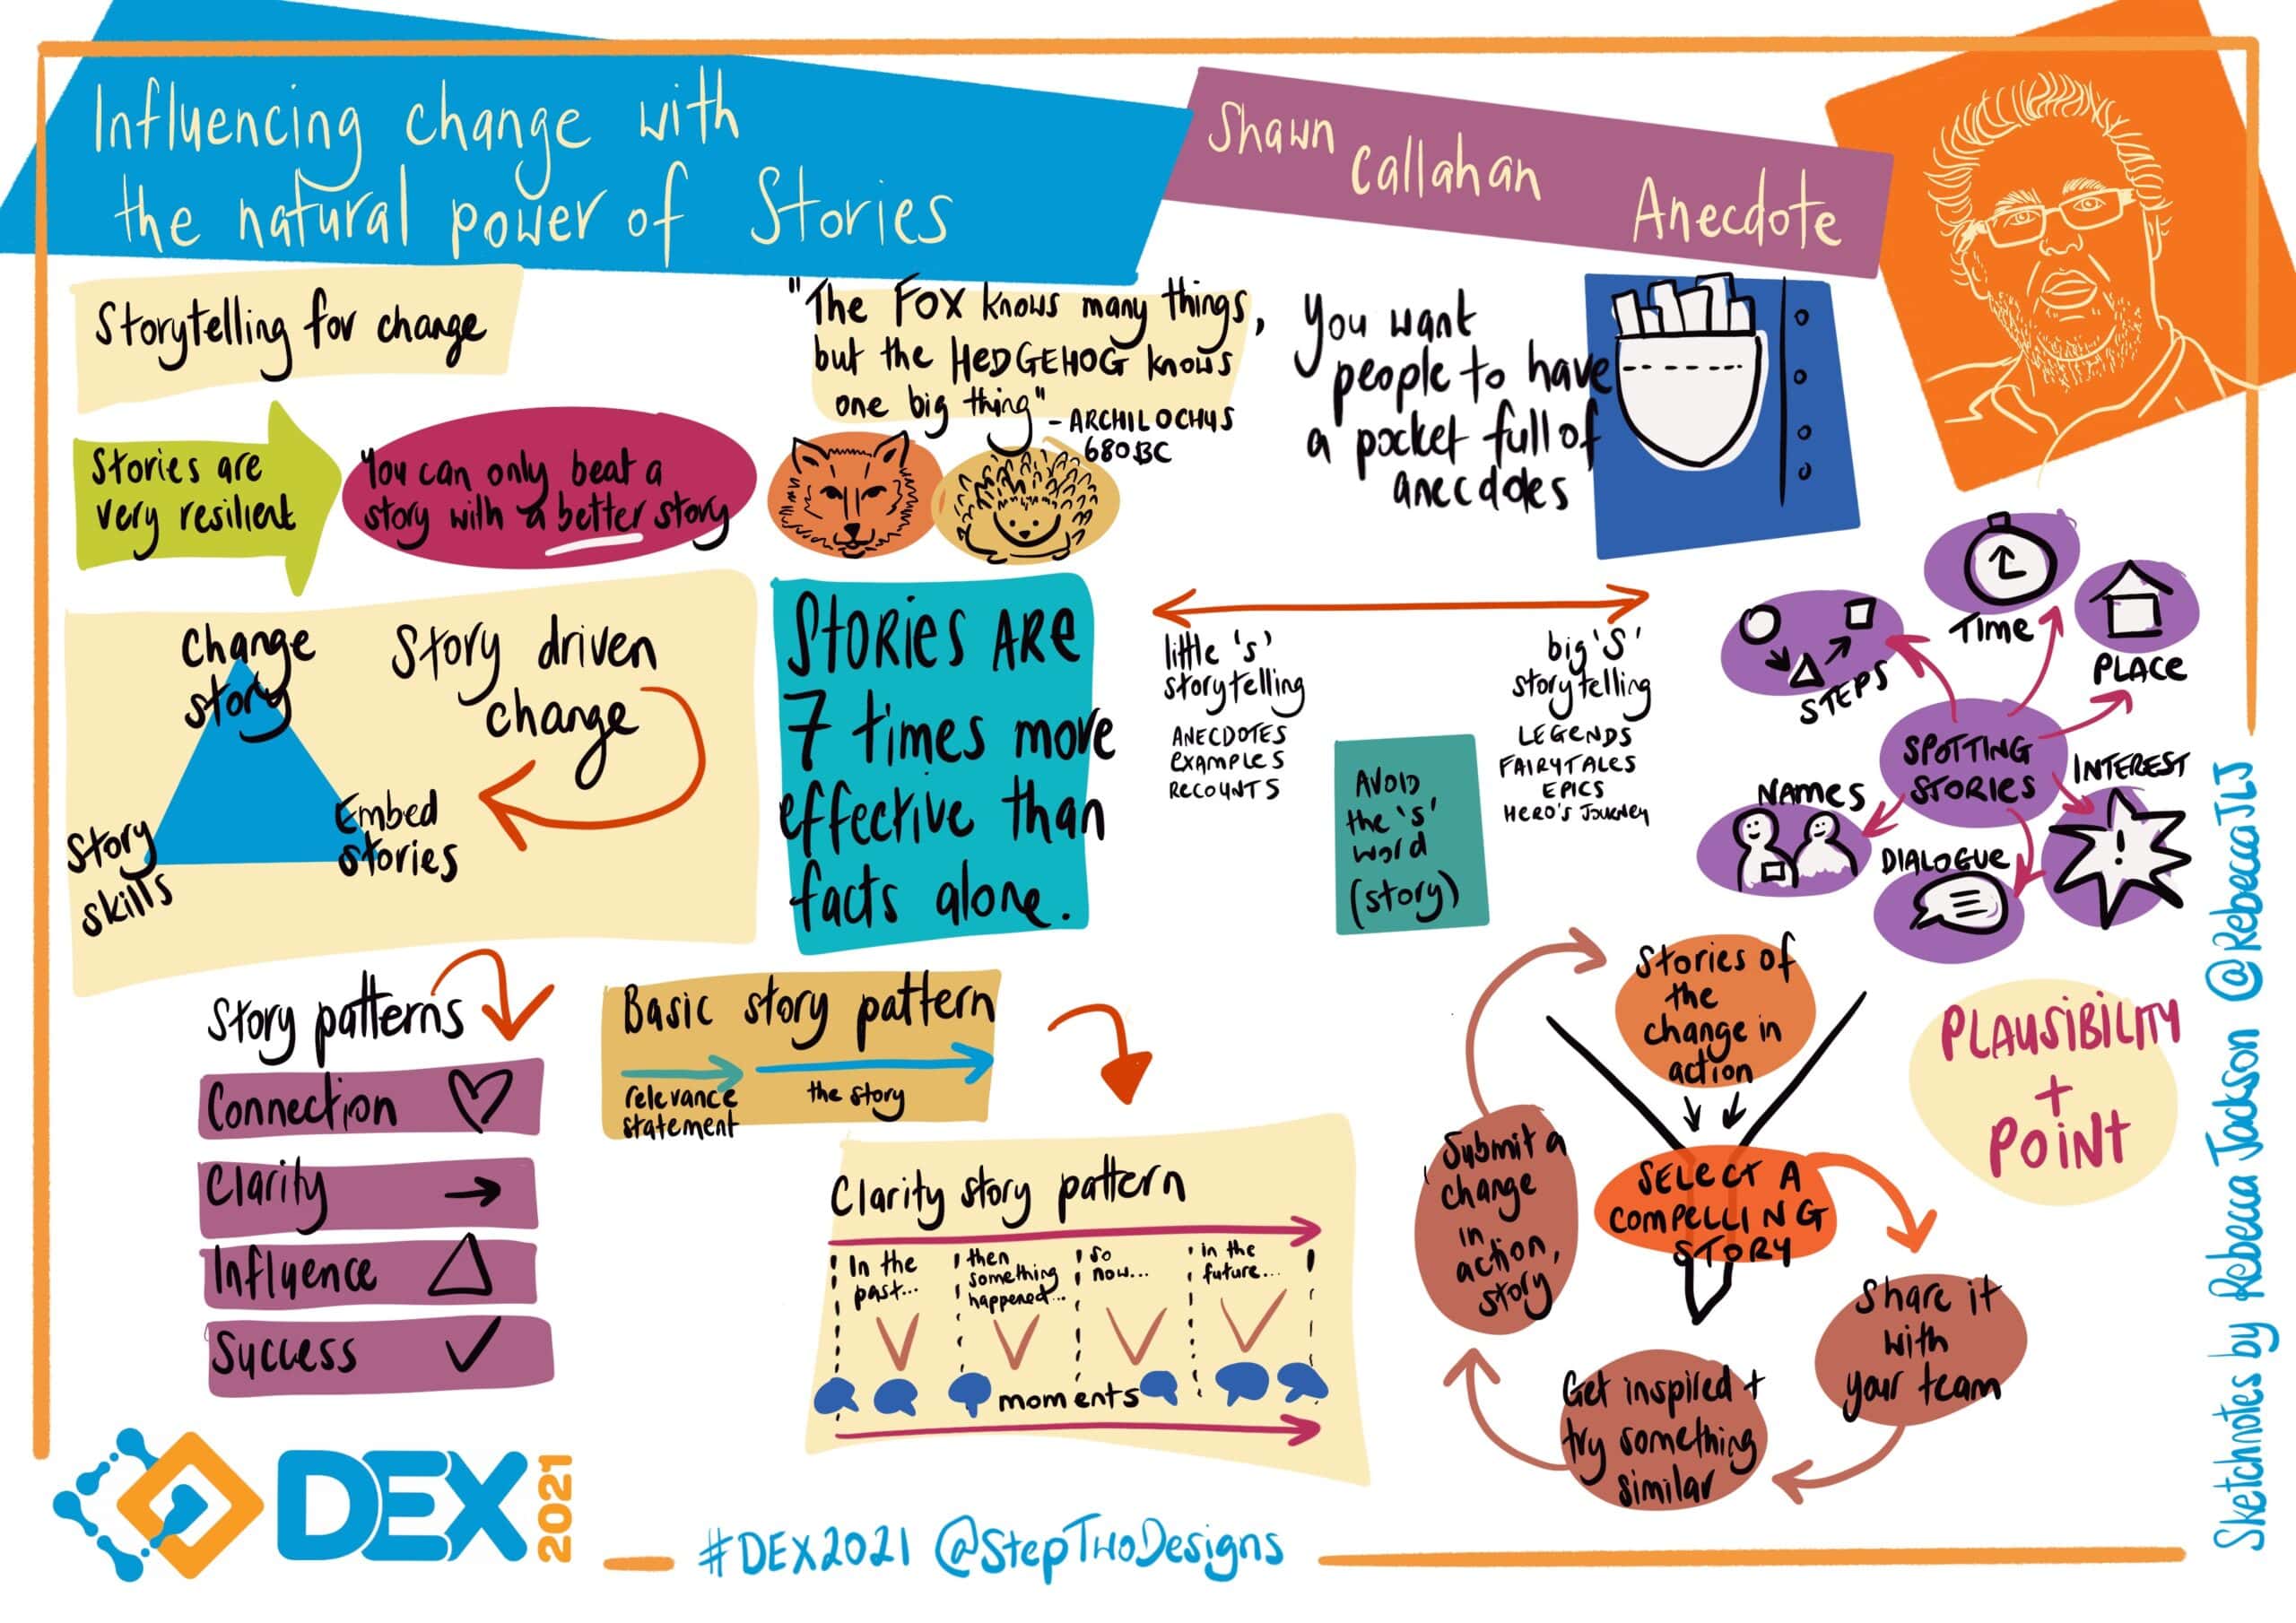 Influencing change with
the natural power of Stories
Shawn Callahan Anecdote
Storytelling for change
Stories are
very resilient
You can only beat a
story with a better story
"The FOX knows many things,
but the HEDGEHOG knows
one big thing"
- ARCHILOCHUS
680BC
You want
people to have
a pocket full of
anecdotes
Change
story
Story
skills
Embed
stories
Story driven
change
STORIES ARE
7 times more
effective than
facts alone.
little 's'
storytelling
ANECDOTES
EXAMPLES
RECOUNTS
big 'S'
storytelling
LEGENDS
FAIRYTALES
EPICS
HERO'S JOURNEY
AVOID
the 's'
word
(story)
SPOTTING
STORIES
STEPS
TIME
PLACE
INTEREST
DIALOGUE
NAMES
Story patterns
Connection
Clarity
Influence
Success
Basic story pattern
relevance
statement
the story
Clarity story pattern
In the
past...
then
something
happened...
so
now...
in the
future...
moments
Stories of
the
change in
action
SELECT A
COMPELLING
STORY
Share it
with
your team
Get inspired +
try something
similar
Submit a
change
in
action,
story,
PLAUSIBILITY
+
POINT
DEX 2021
#DEX2021 @StepTwoDesigns
Sketchnotes by Rebecca Jackson @RebeccaJLJ